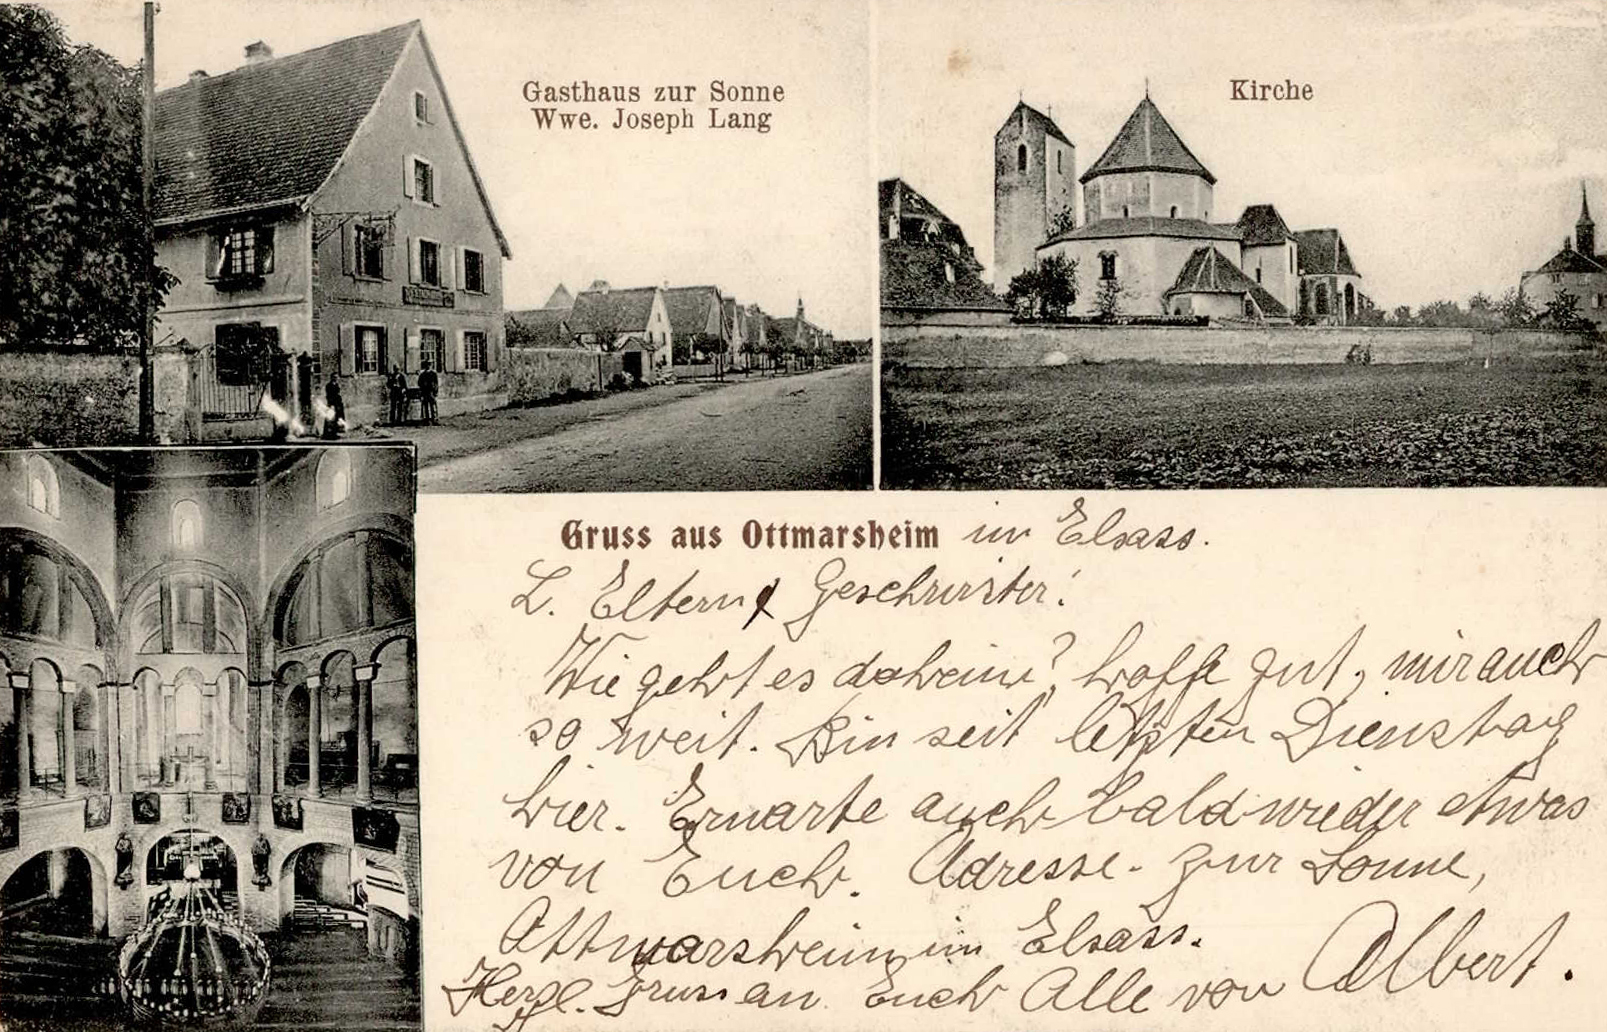 Gasthaus zur Sonne
Wwe. Joseph Lang
Kirche
Gruss aus Ottmarsheim im Elsass.
L. Eltern & Geschwister!
Wie geht es daheim? hoffe gut, mir auch
so weit. Bin seit letzten Dienstag
hier. Erwarte auch bald wieder etwas
von Euch. Adresse. zur Sonne,
Ottmarsheim im Elsass.
Herzl. Gruss an Euch Alle von Albert.